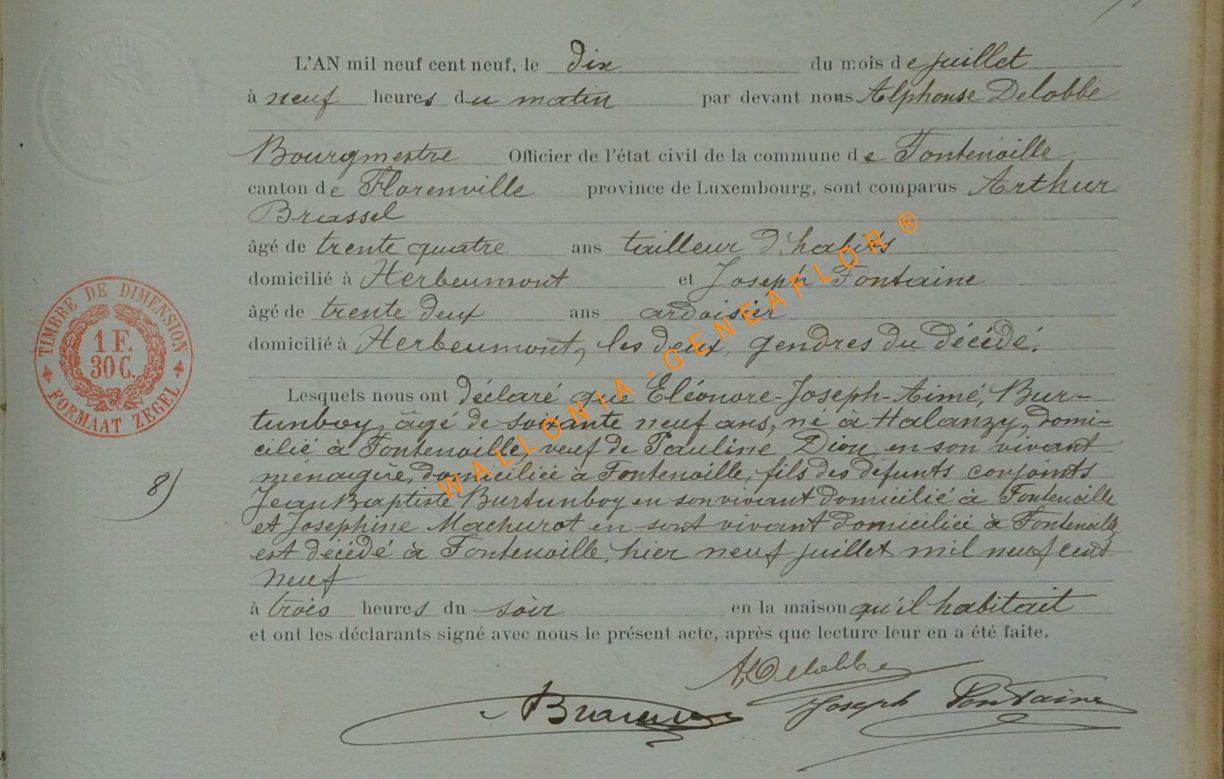 L'AN mil neuf cent neuf, le dix du mois de juillet
à neuf heures du matin par devant nous Alphonse Delobbe
Bourgmestre Officier de l'état civil de la commune de Fontenoille
canton de Florenville province de Luxembourg, sont comparus Arthur
Brassel
âgé de trente quatre ans tailleur d'habits
domicilié à Herbeumont et Joseph Fontaine
âgé de trente deux ans ardoisier
domicilié à Herbeumont, les deux, gendres du décédé.
Lesquels nous ont déclaré que Eléonore-Joseph-Aimé, Bur-
tunboy, âgé de soixante neuf ans, né à Halanzy, domi-
cilié à Fontenoille, veuf de Pauline, Diou, en son vivant
ménagère, domiciliée à Fontenoille, fils des défunts conjoints
Jean Baptiste Burtunboy en son vivant domicilié à Fontenoille
et Josephine Machurot en sont vivant domiciliée à Fontenoille
est décédé à Fontenoille, hier neuf juillet mil neuf cent
neuf
à trois heures du soir en la maison qu'il habitait
et ont les déclarants signé avec nous le présent acte, après que lecture leur en a été faite.
ADelobbe
Joseph Fontaine
8)
TIMBRE DE DIMENSION
1 F.
30 C.
FORMAAT ZEGEL
WALLONIA-GENEAFLOR ®